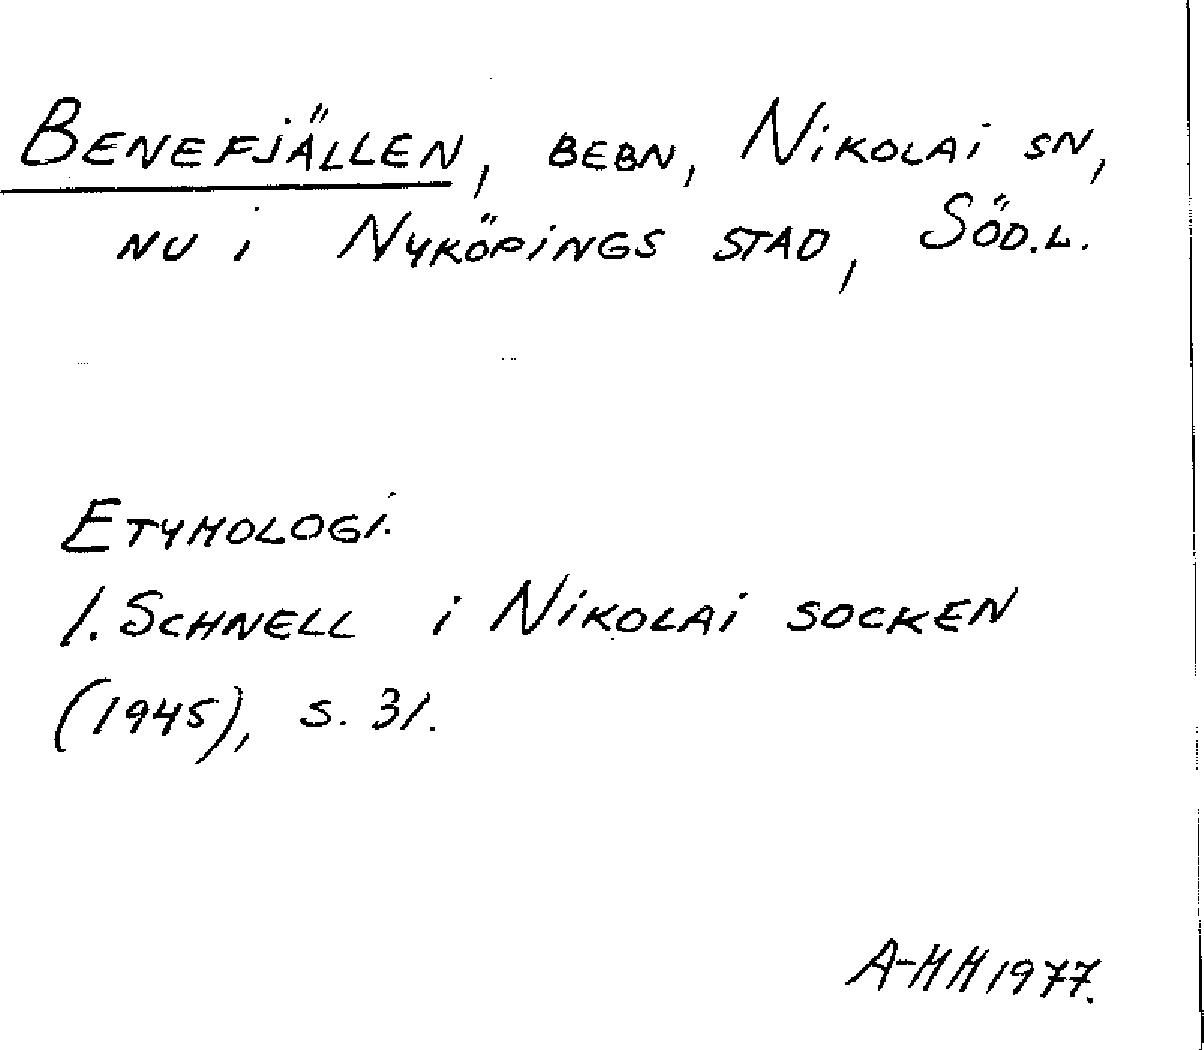 BENEFJÄLLEN, BEBN, NIKOLAI SN,
NU I NYKÖPINGS STAD, SÖD.L.
ETYMOLOGI.
I. SCHNELL I NIKOLAI SOCKEN
(1945), S. 31.
A-MH 1977.